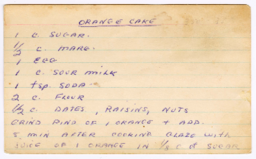 ORANGE CAKE
1 C. SUGAR.
1/2 C. MARG.
1 EGG
1 C. SOUR MILK
1 tsp. SODA
2 C. FLOUR
1/2 C. DATES, RAISINS, NUTS
GRIND RIND OF 1 ORANGE & ADD.
5 MIN AFTER COOKING GLAZE WITH
JUICE OF 1 ORANGE IN 1/2 C OF SUGAR